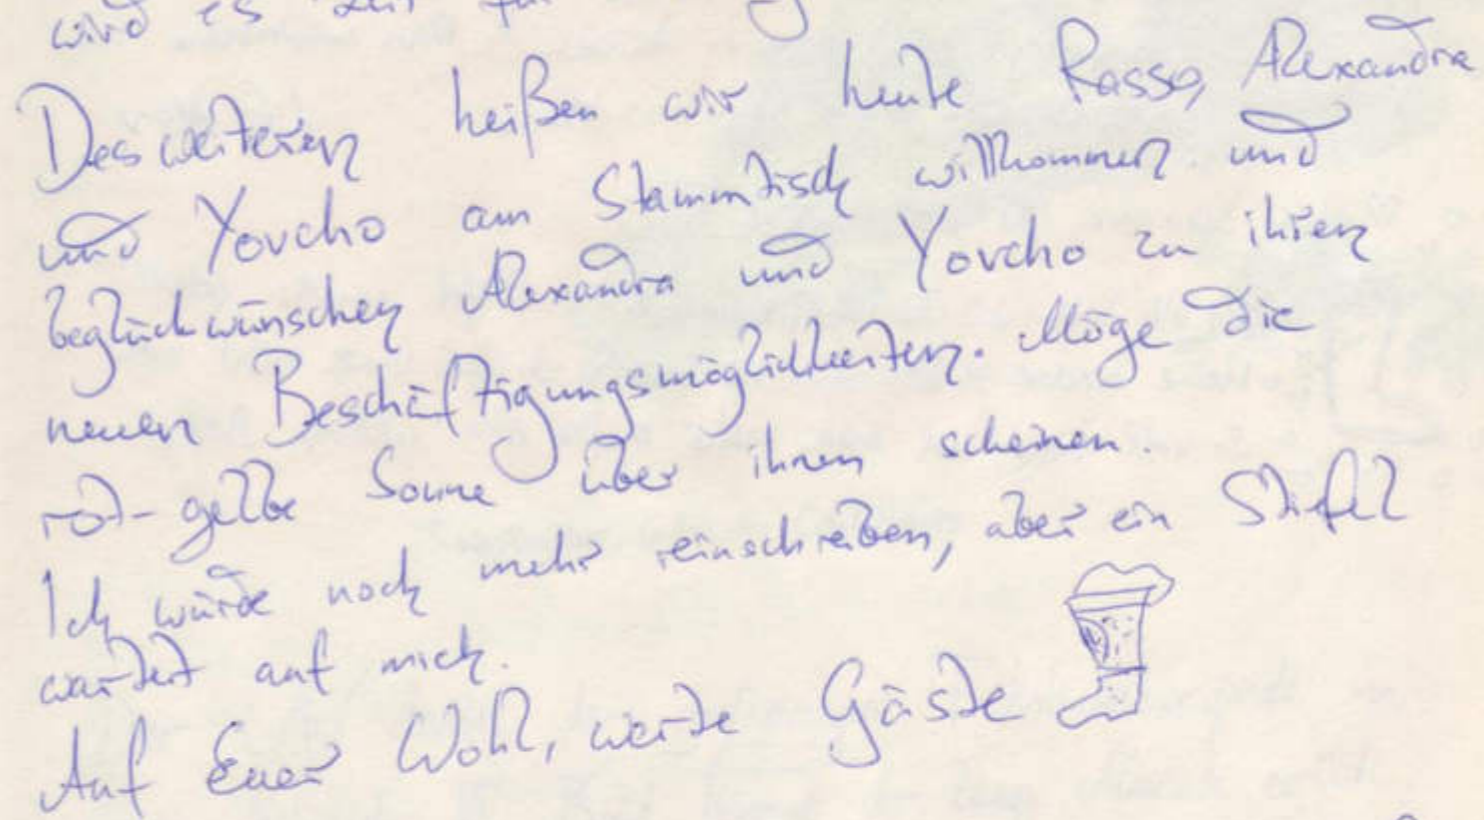 wird es Zeit für
Des weiteren heißen wir heute Rasso, Alexandra
und Yovcho am Stammtisch willkommen und
beglückwünschen Alexandra und Yovcho zu ihren
neuen Beschäftigungsmöglichkeiten. Möge die
rot-gelbe Sonne über ihnen scheinen.
Ich würde noch mehr reinschreiben, aber ein Stiefel
wartet auf mich.
Auf Euer Wohl, werte Gäste